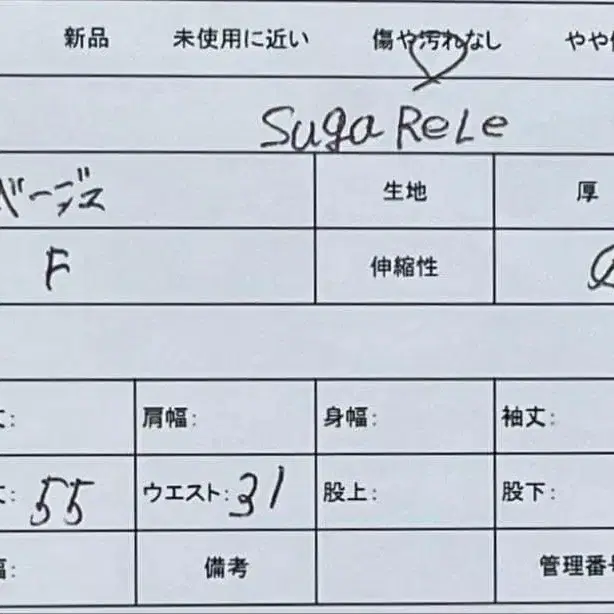 新品 未使用に近い 傷や汚れなし やや
Suga ReLe
ベージュ 生地 厚
F 伸縮性
丈: 肩幅: 身幅: 袖丈:
丈: 55 ウエスト: 31 股上: 股下:
幅: 備考 管理番号